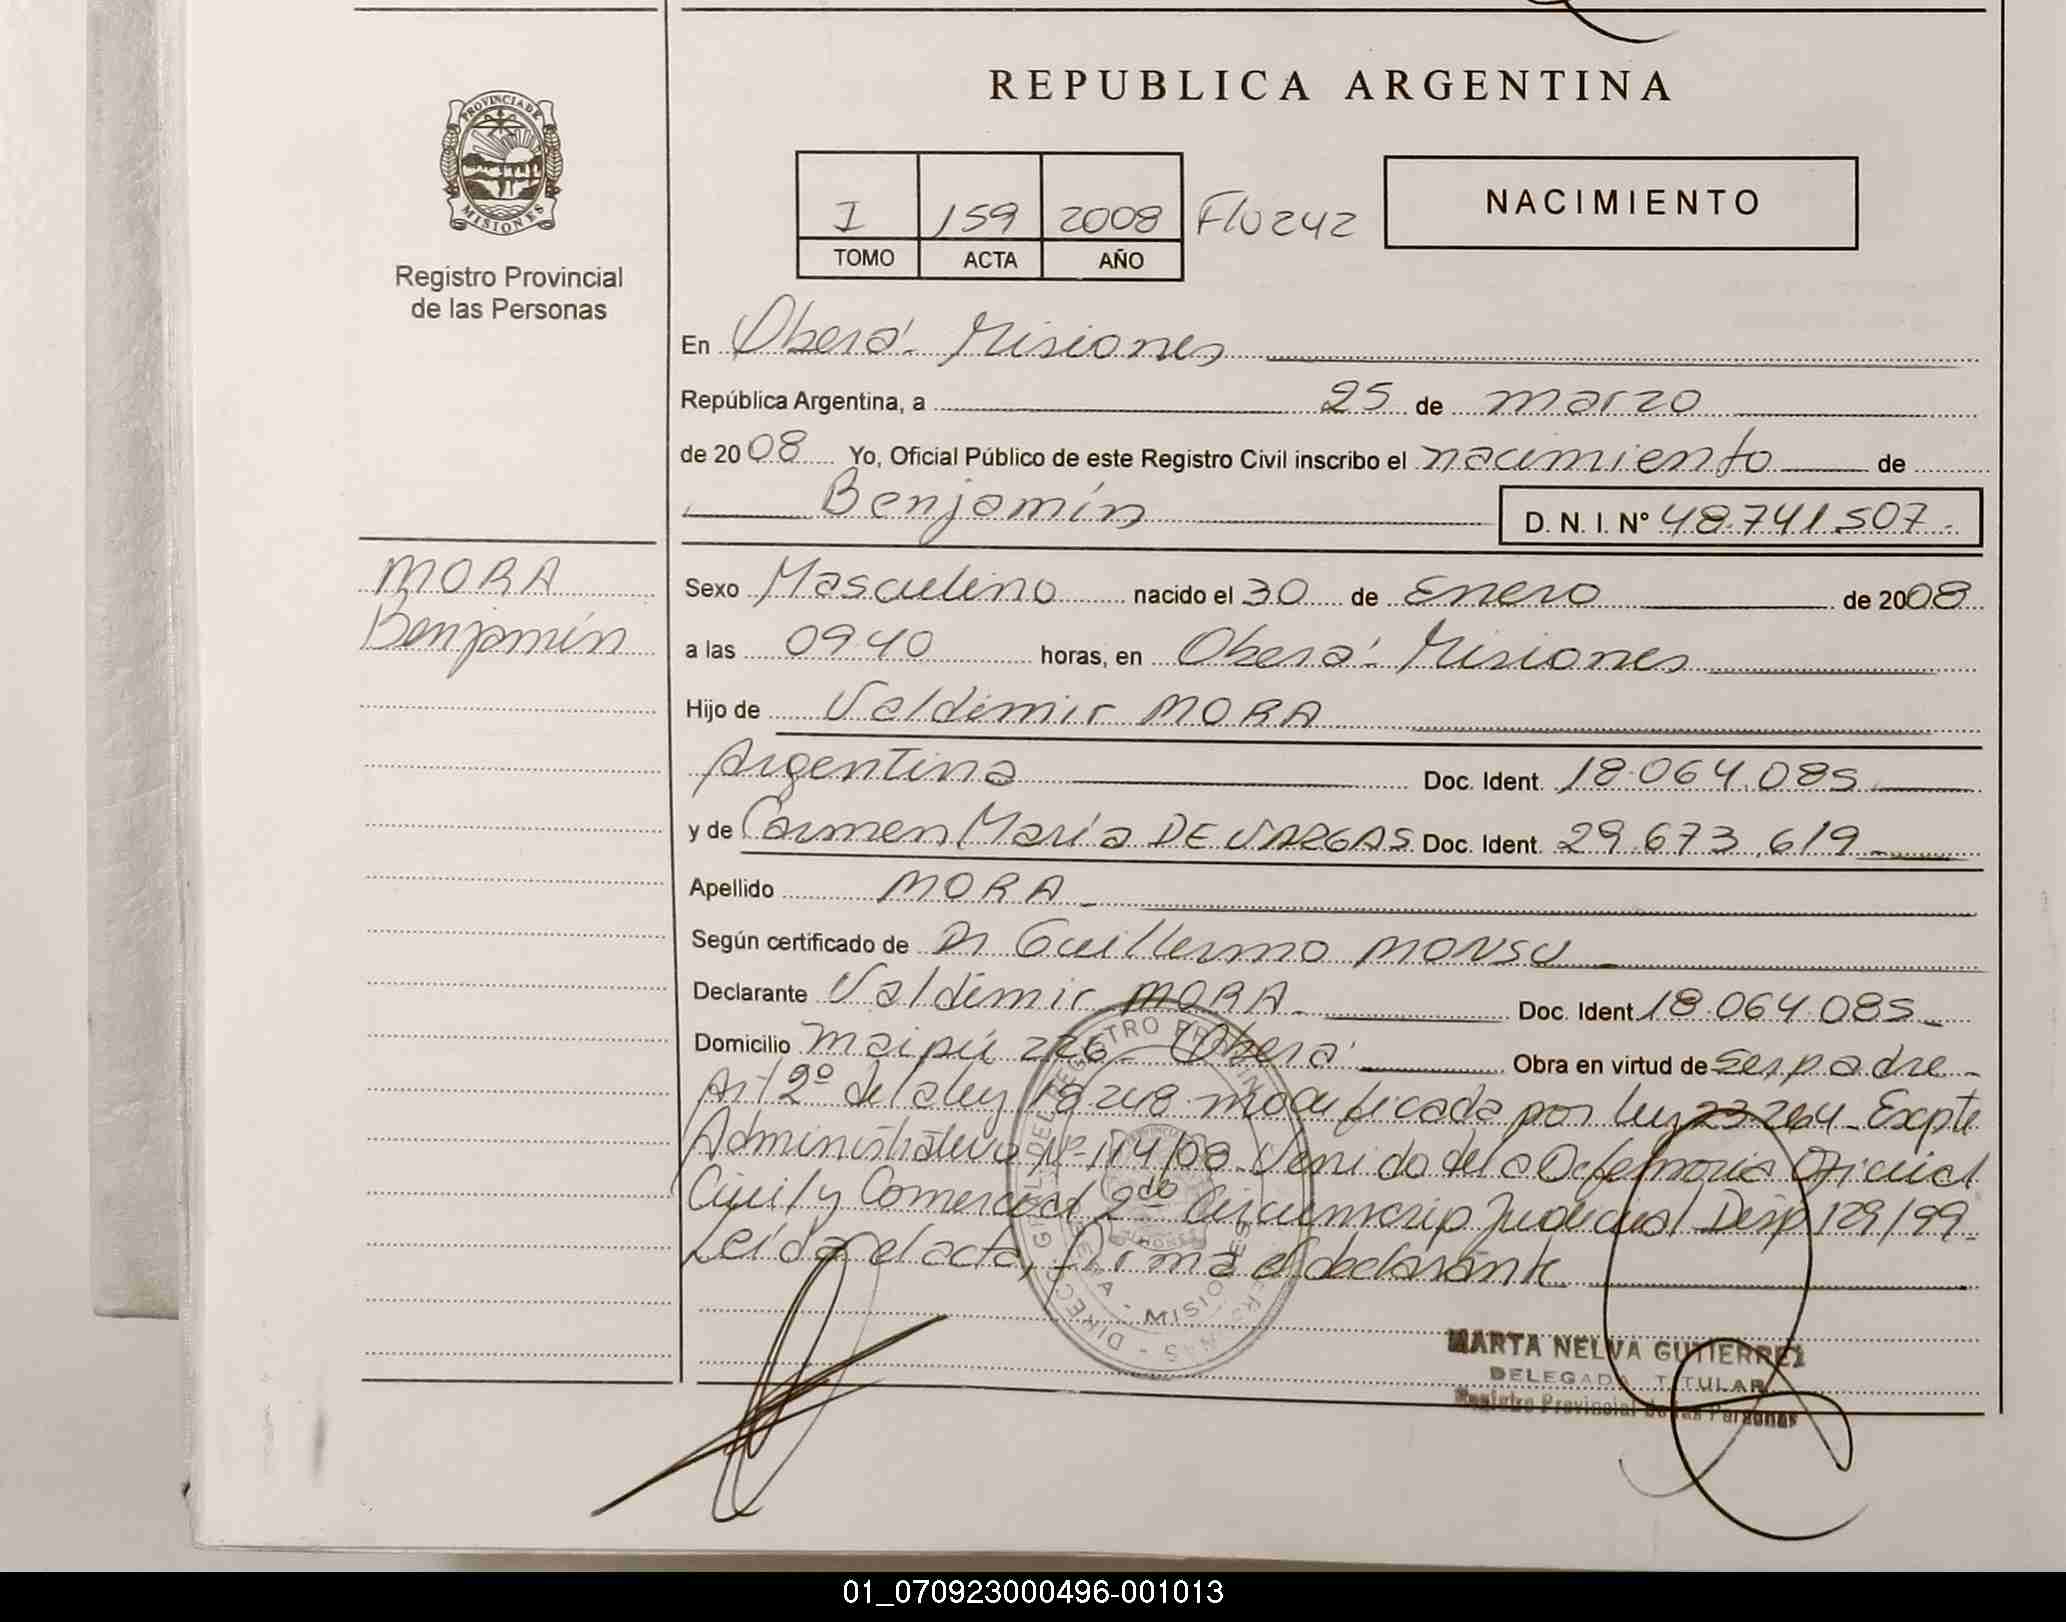 REPUBLICA ARGENTINA
PROVINCIA DE
MISIONES
Registro Provincial
de las Personas
I 159 2008 Flo 242
TOMO ACTA AÑO
NACIMIENTO
En Oberá - Misiones
República Argentina, a 25 de marzo
de 2008 Yo, Oficial Público de este Registro Civil inscribo el nacimiento de
Benjamín D. N. I. N° 48.741.507.-
MORA
Benjamín
Sexo Masculino nacido el 30 de Enero de 2008
a las 09.40 horas, en Oberá - Misiones
Hijo de Valdimir MORA
Argentina Doc. Ident. 18.064.085
y de Carmen María DE VARGAS Doc. Ident. 29.673.619
Apellido MORA
Según certificado de Dr Guillermo MONSU
Declarante Valdimir MORA Doc. Ident 18.064.085
Domicilio Maipú 226 - Oberá Obra en virtud de ser padre -
Art 2º de la ley 18248 modificada por ley 23264 - Expte
Administrativo Nº 114/08 Venido de la Defensoria Oficial
Civil y Comercial 2da Circunscrip Judicial Disp 129/99
Leída el acta, firma el declarante
MARTA NELVA GUTIERREZ
DELEGADA TITULAR
Registro Provincial de las Personas
01_070923000496-001013